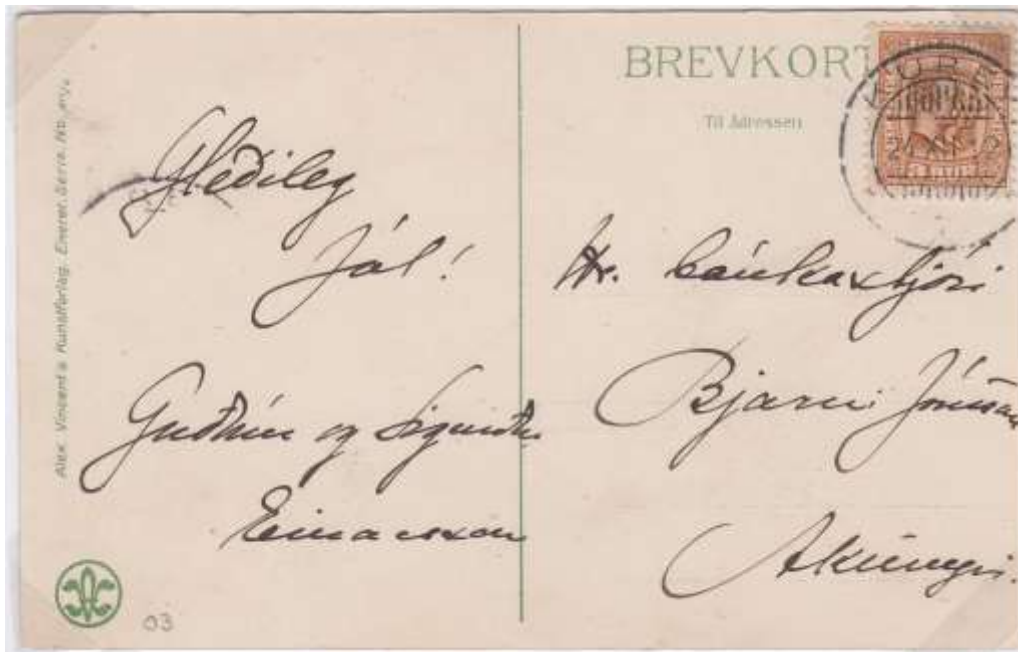 Alex. Vincent's Kunstforlag. Eneret. Serie. No.
Gleðileg
Jól!
Guðrún og Sigurður
Einarsson
03
BREVKORT
Til Adressen
Hr. bankastjóri
Bjarni Jónsson
Akureyri.